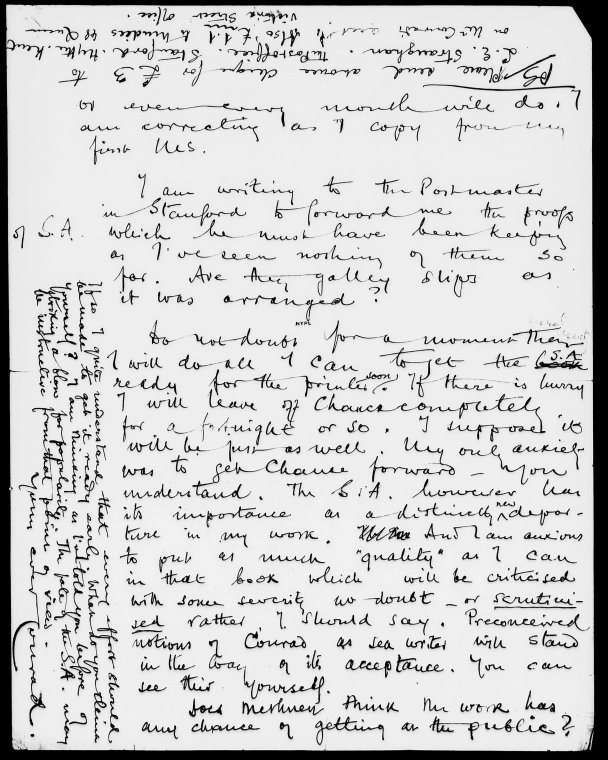 or even every month will do. I
am correcting as I copy from my
first MS.
I am writing to the Postmaster
in Stanford to forward me the proofs
of S.A. which he must have been keeping
as I've seen nothing of them so
far. Are they galley slips as
it was arranged?
Do not doubt for a moment then
I will do all I can to get the S.A.
ready for the printer soon. If there is hurry
I will leave off Chance completely
for a fortnight or so. I suppose it
will be just as well. My only anxiety
was to get Chance forward – you
understand. The S.A. however has
its importance as a distinctly new depar-
ture in my work. And I am anxious
to put as much "quality" as I can
in that book which will be criticised
with some severity no doubt – or scrutini-
sed rather I should say. Preconceived
notions of Conrad as sea writer will stand
in the way of its acceptance. You can
see this yourself.
Does Methuen think the work has
any chance of getting at the public?
If so I quite understand that every effort should
be made to get it ready early. When do you
yourself? I am thinking as I've told you before of
striking a blow for popularity. The fate of the S.A. may
be instructive from that point of view.
Yours ever Conrad.
PS/ Please send cheque for £3 to
L. E. Straughan. The Post office. Stanford. Hythe. Kent
on Mr Conrad's acct. Also £1.1 to 49 Queen
Victoria Street office.